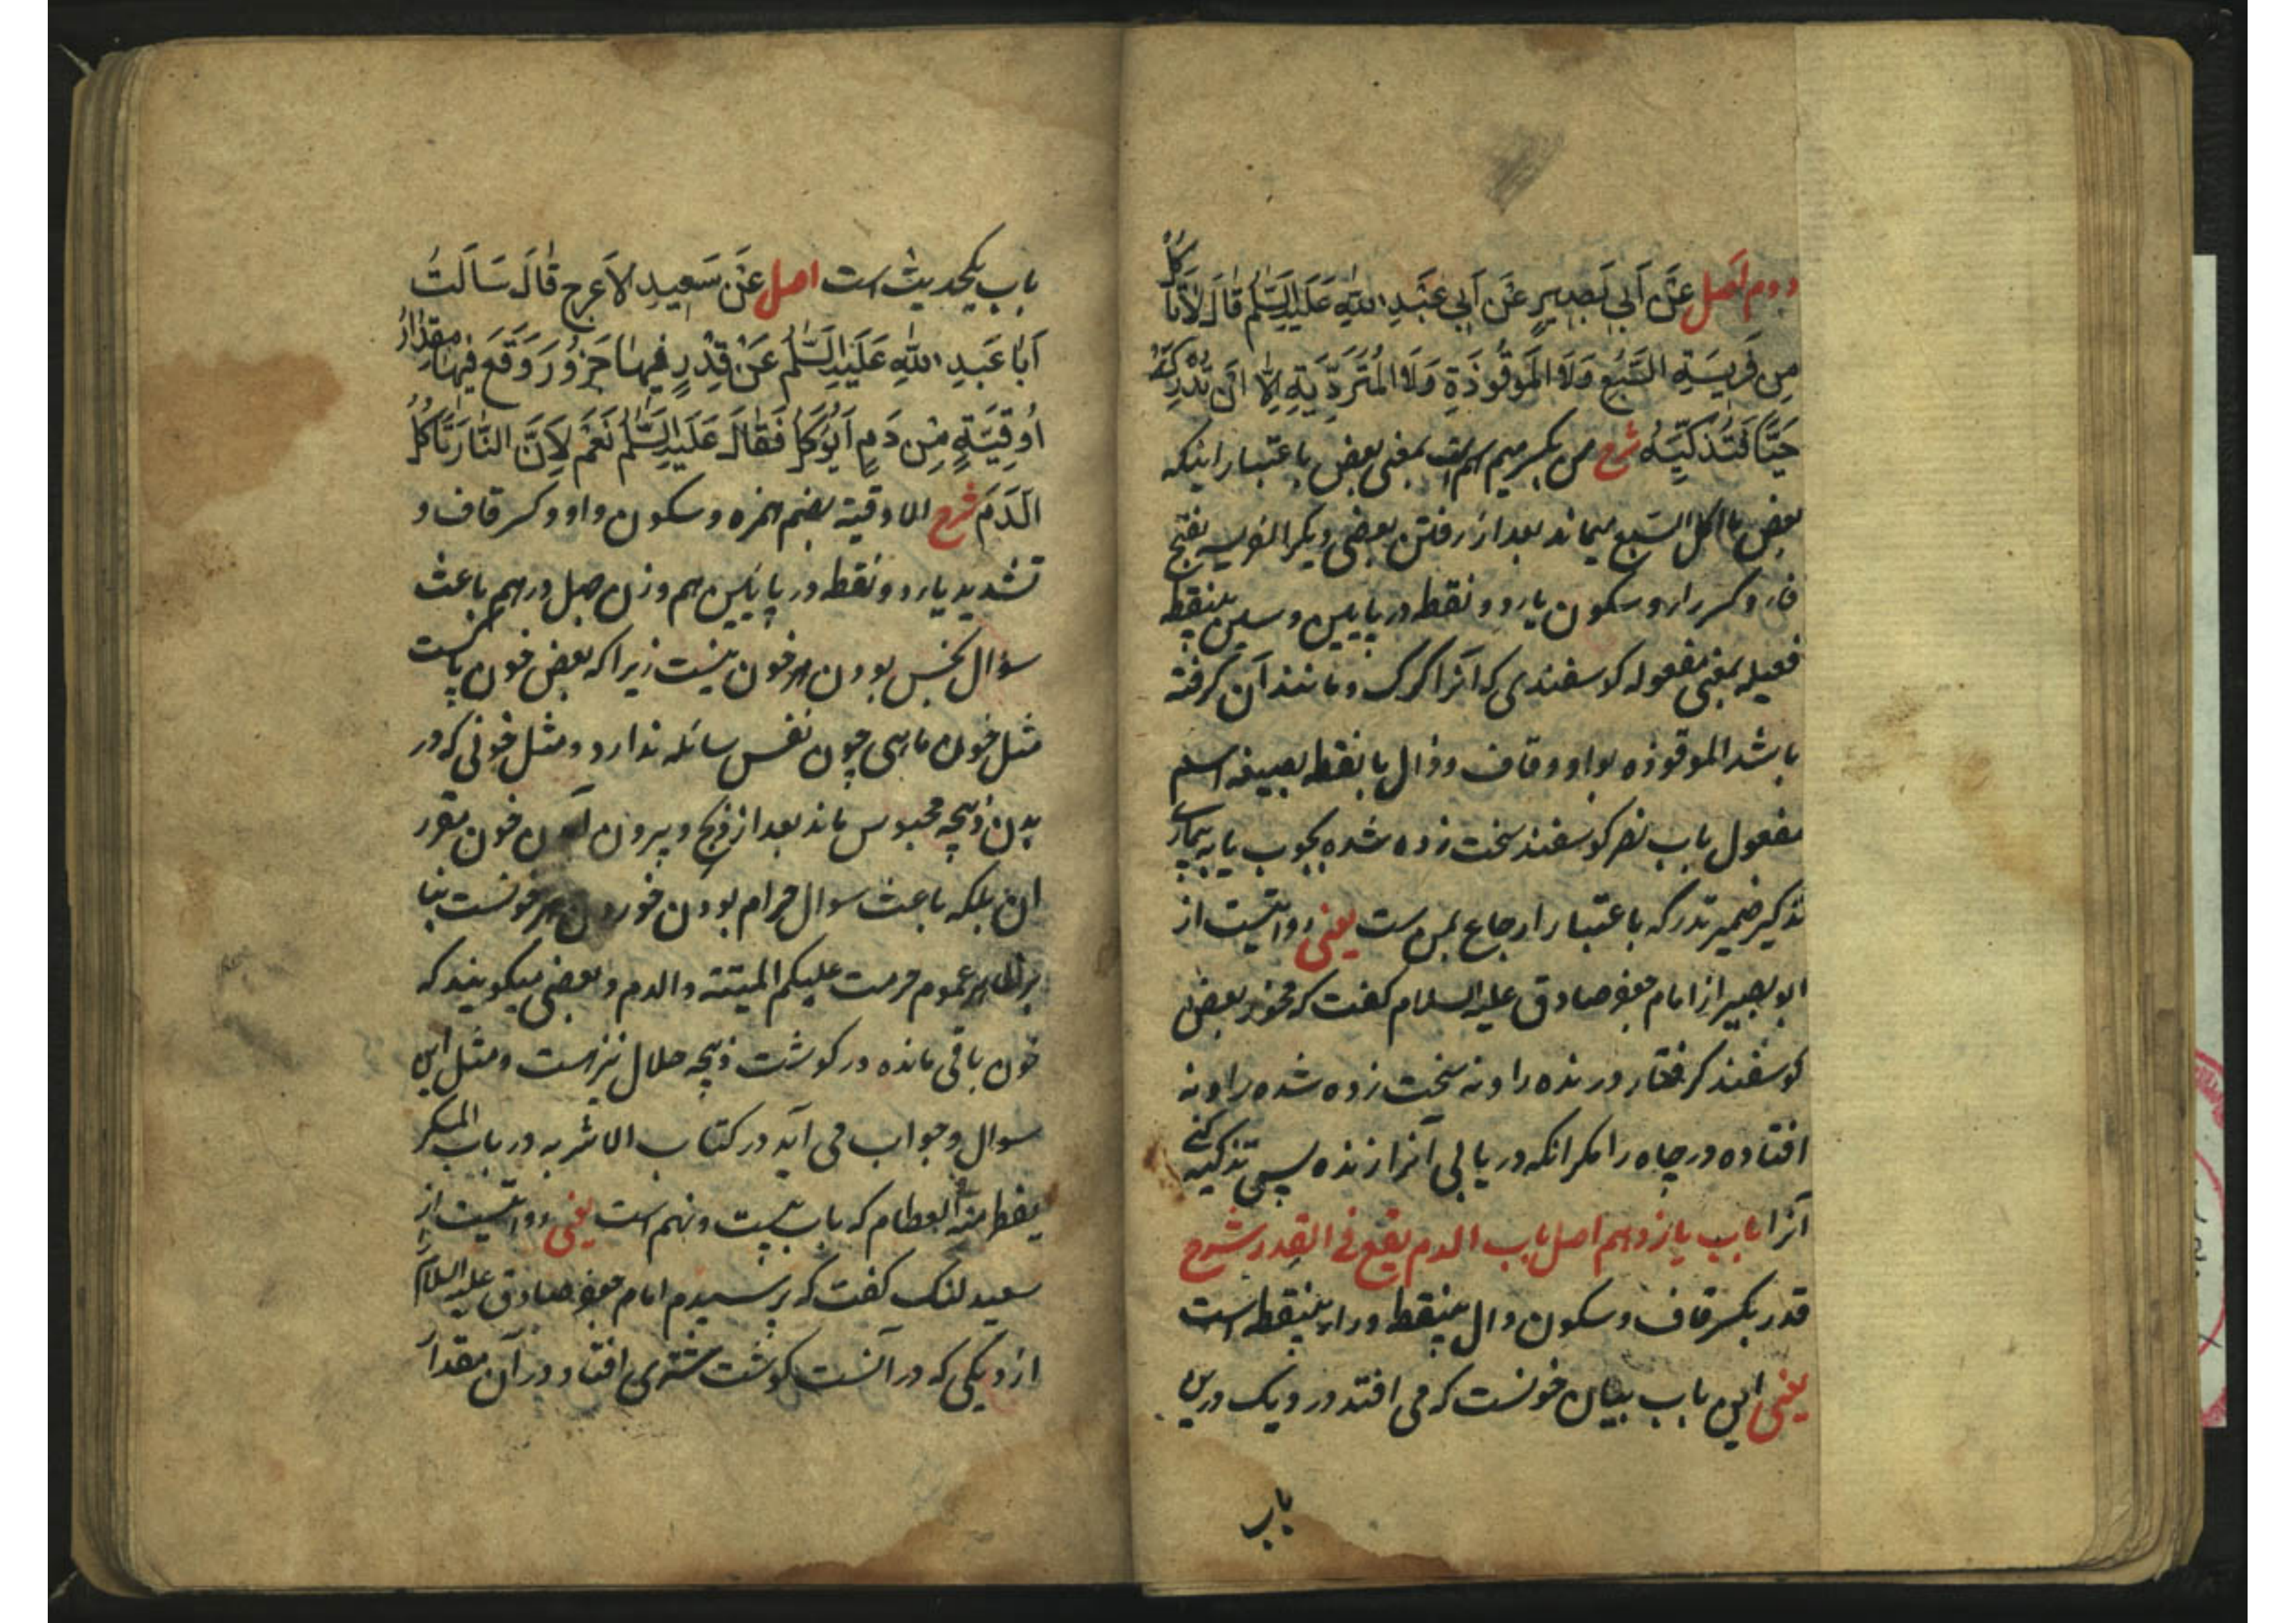 دوم اصل عَنْ اَبي بَصِيرٍ عَنْ اَبي عَبْدِ اللّٰهِ عَلَيْهِ السَّلٰمُ قَالَ لَا تَأْكُلْ
مِن فَرِيسَةِ السَّبُعِ وَلَا المَوقُوذَةِ وَلَا المُتَرَدِّيَةِ اِلّا اَنْ تُدْرِكَهُ
حَيًّا فَتُذَكِّيَهُ شرح من بکسر میم اسم است بمعنی بعض باعتبار اینکه
بعض ما اکل السبع میماند بعد از رفتن بعضی دیگر الفریسه بفتح
فا و کسر راء و سکون یا دو نقطه در پایین و سین بینقطه
فعیله بمعنی مفعوله کوسفندی که آنرا کرک و مانند آن کرفته
باشد الموقوذه بواو و قاف و ذال با نقطه بصیغه اسم
مفعول باب نصر کوسفند سخت زده شده بچوب یا به بیماری
تذکیر ضمیر تدرکه باعتبار ارجاع بمن ست یعنی روایتست از
ابو بصیر از امام جعفر صادق علیه السلام کفت که مخور بعض
کوسفند کرفتار درنده را و نه سخت زده شده را و نه
افتاده در چاه را مکر انکه دریابی آنرا زنده پس تذکیه کنی
آنرا باب یازدهم اصل باب الدم یقع فی القدر شرح
قدر بکسر قاف و سکون دال بینقطه و راء بینقطه است
یعنی این باب بیان خونست که می افتد در دیک درین
باب
باب یکحدیث است اصل عَنْ سَعِيدٍ الاَعرَجِ قَالَ سَاَلتُ
اَبَا عَبدِ اللّٰهِ عَلَيْهِ السَّلٰمُ عَنْ قِدْرٍ فِيهَا جَزُورٌ وَقَعَ فِيهَا مِقدَارُ
اُوقِيَّةٍ مِنْ دَمٍ اَيُؤكَلُ فَقَالَ عَلَيْهِ السَّلٰمُ نَعَمْ لِاَنَّ النَّارَ تَأكُلُ
الدَمَ شرح الاوقیة بضم همزه و سکون واو و کسر قاف و
تشدید یا دو نقطه در پایین هم وزن چهل درهم باعث
سؤال نجس بودن هر خون نیست زیرا که بعض خون پاکست
مثل خون ماهی چون نفس سائله ندارد و مثل خونی که در
بدن ذبیحه محبوس ماند بعد از ذبح و بیرون آمدن خون مقرر
ان بلکه باعث سوال حرام بودن خوردن هر خونست بنا
بر ظاهر عموم حرمت علیکم المیتة والدم و بعضی میکویند که
خون باقی مانده در کوشت ذبیحه حلال نیزست و مثل این
سوال و جواب می آید در کتاب الاشربه در باب المسکر
یقطر منه الطعام که باب بیست و نهم است یعنی روایتست از
سعید لنک کفت که پرسیدم امام جعفر صادق علیه السلام را
از دیکی که در آنست کوشت شتری افتاد در آن مقدار